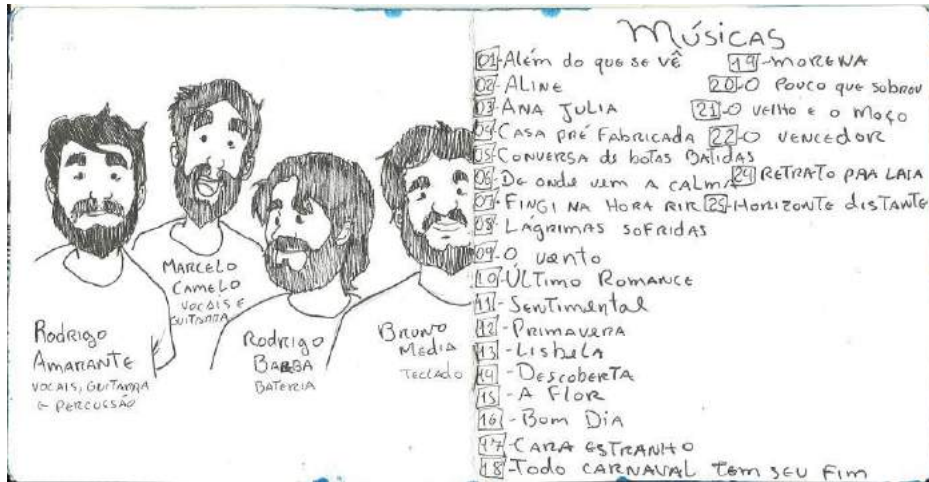 MARCELO
CAMELO
VOCAIS E
GUITARRA
Rodrigo
AMARANTE
VOCAIS, GUITARRA
E PERCUSSÃO
Rodrigo
BARBA
BATERIA
BRUNO
MEDIA
TECLADO
MÚSICAS
01-Além do que se vê
02-ALINE
03-ANA JULIA
04-CASA PRÉ FABRICADA
05-CONVERSA de botas BATIDAS
06-De onde vem A CALMA
07-FINGI NA HORA RIR
08-LÁGRIMAS SOFRIDAS
09-O vento
10-ÚLTIMO ROMANCE
11-Sentimental
12-PRIMAVERA
13-Lisbela
14-DESCOBERTA
15-A FLOR
16-Bom DIA
17-CARA ESTRANHO
18-Todo CARNAVAL TEM SEU FIM
19-MORENA
20-O Pouco que sobrou
21-O velho e o Moço
22-O VENCEDOR
24 RETRATO PRA IAIA
25-HORIZONTE dISTANTE